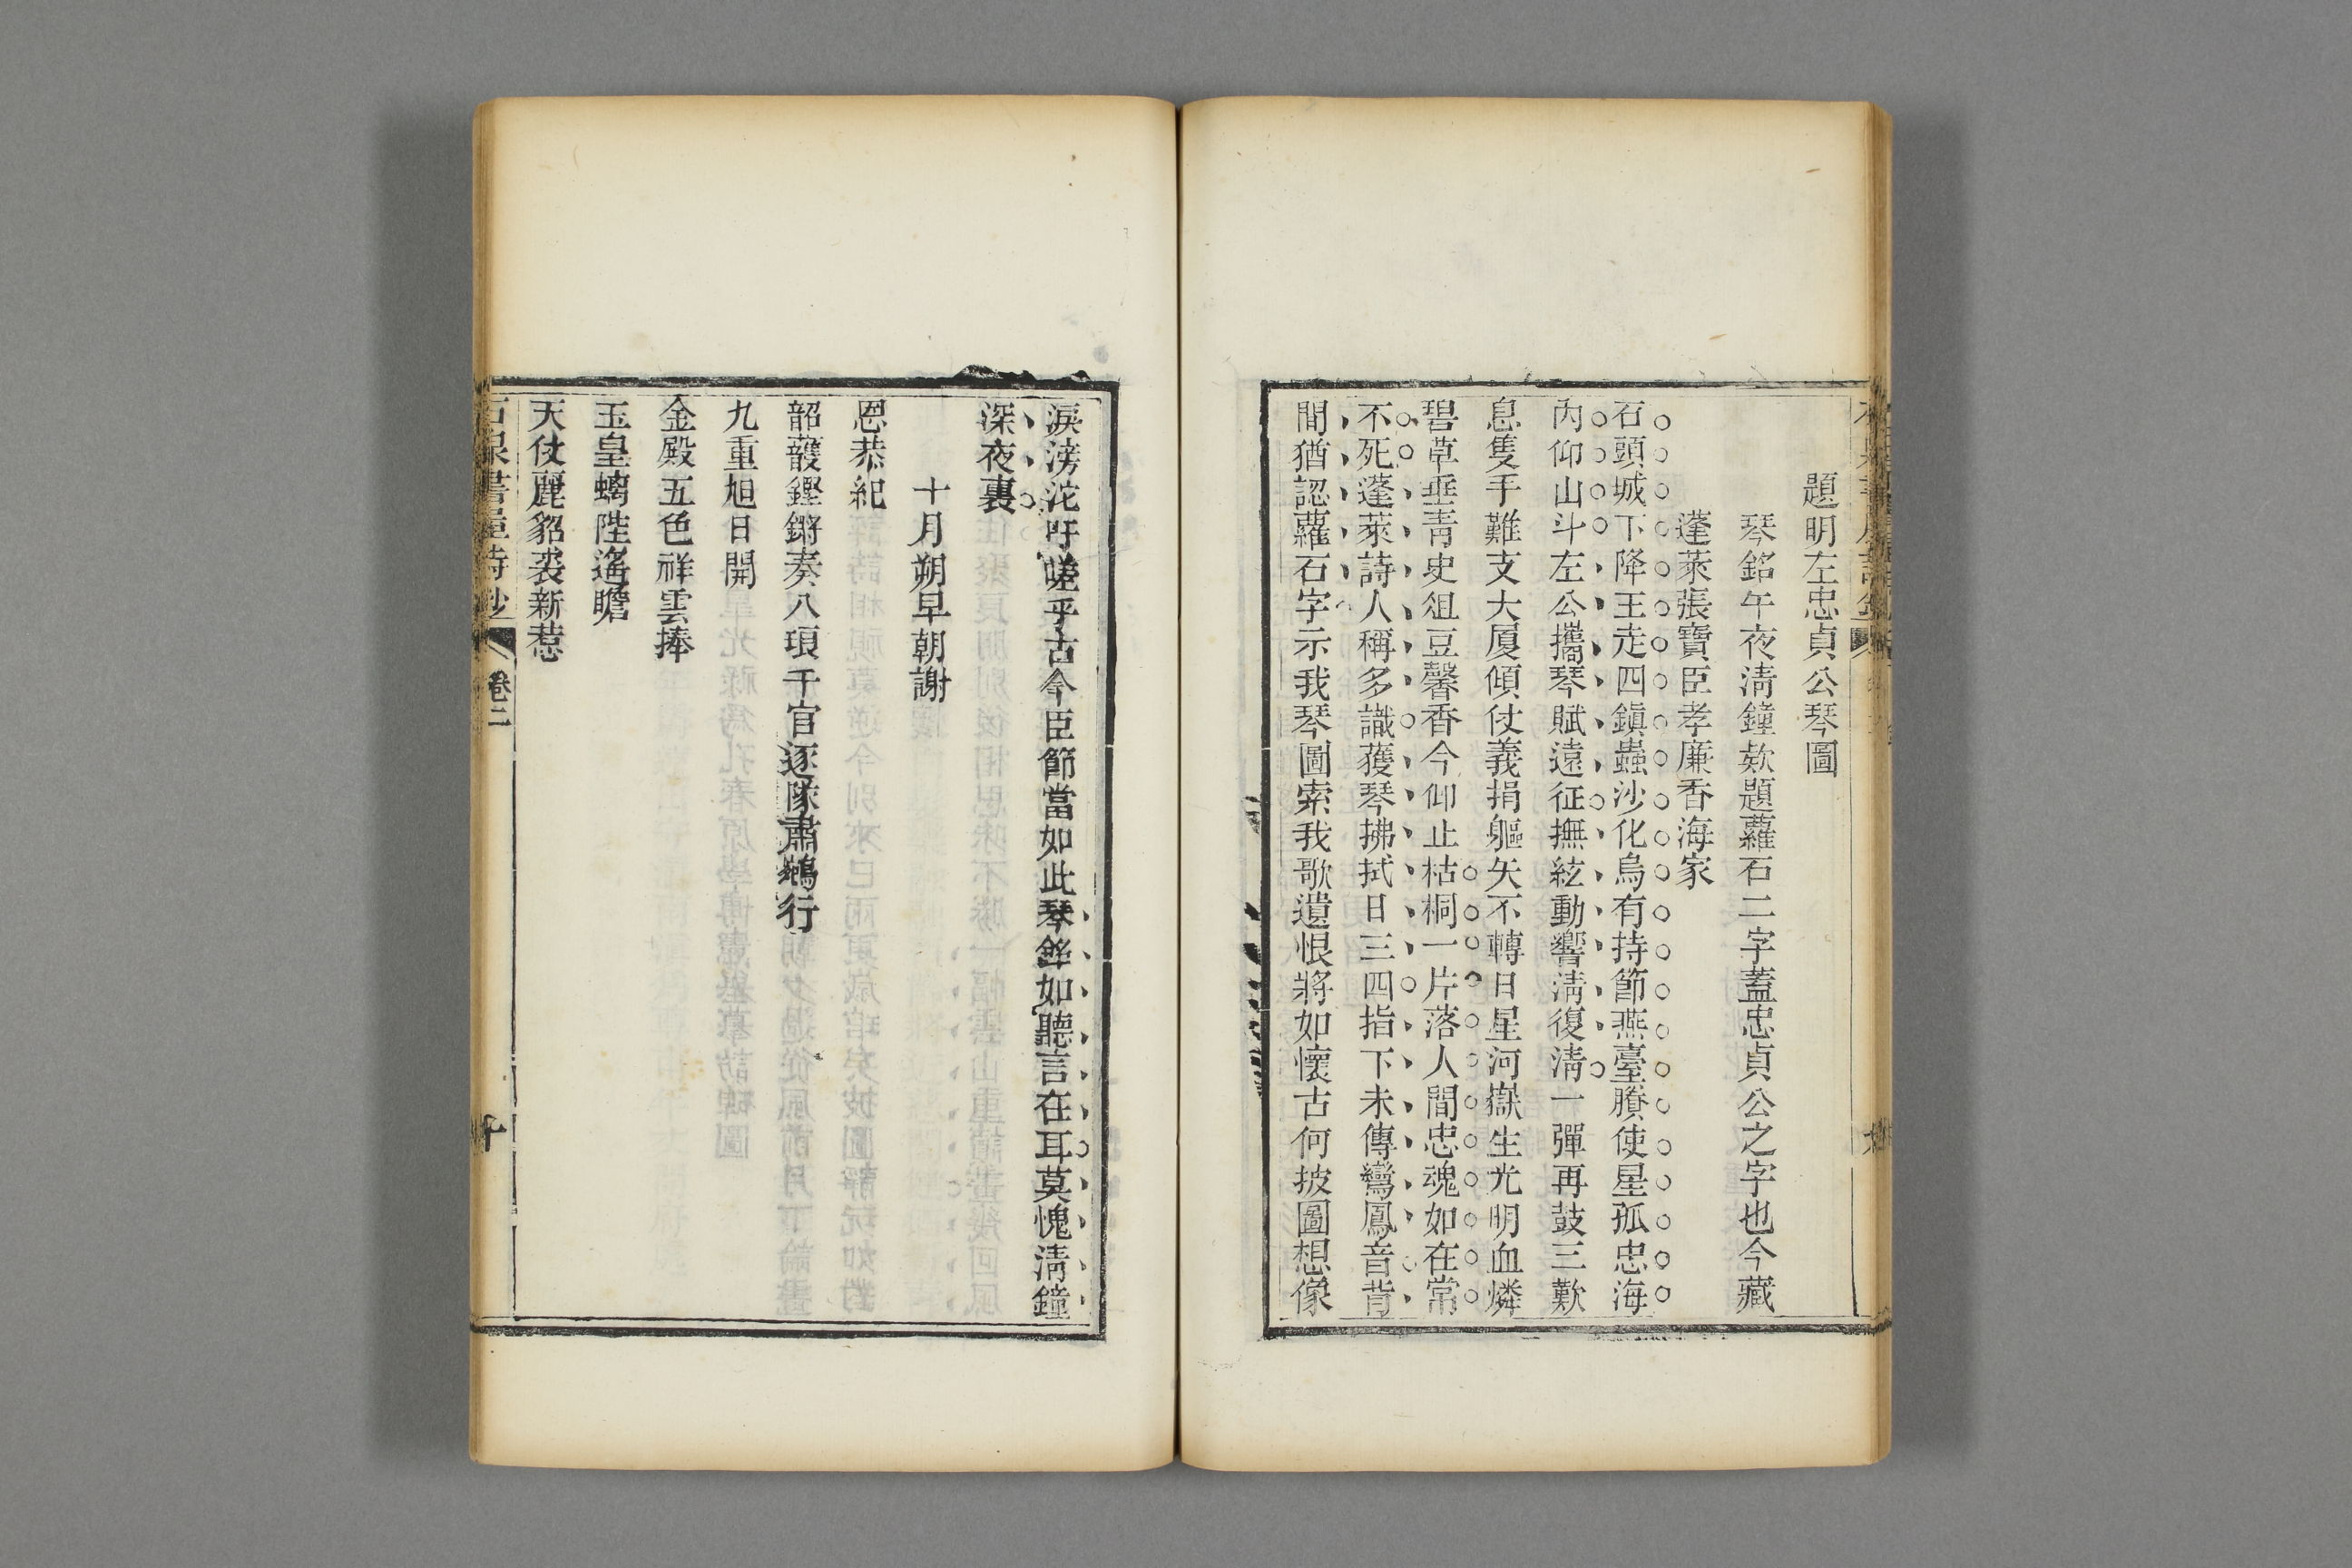 題明左忠貞公琴圖
琴銘午夜清鐘欵題蘿石二字蓋忠貞公之字也今藏
蓬萊張寶臣孝廉香海家
石頭城下降王走四鎮蟲沙化烏有持節燕臺賸使星孤忠海
內仰山斗左公攜琴賦遠征撫絃動響淸復淸一彈再鼓三歎
息隻手難支大厦傾仗義捐軀矢不轉日星河嶽生光明血燐
碧草垂靑史俎豆馨香今仰止枯桐一片落人間忠魂如在常
不死蓬萊詩人稱多識獲琴拂拭日三四指下未傳鸞鳳音背
間猶認蘿石字示我琴圖索我歌遺恨將如懷古何披圖想像
淚滂沱吁嗟乎古今臣節當如此琴銘如聽言在耳莫愧淸鐘
深夜裏
十月朔早朝謝
恩恭紀
韶頀鏗鏘奏八琅千官逐隊肅鵷行
九重旭日開
金殿五色祥雲捧
玉皇螭陛遙瞻
天仗麗貂裘新惹
石泉書屋詩鈔
卷二
十